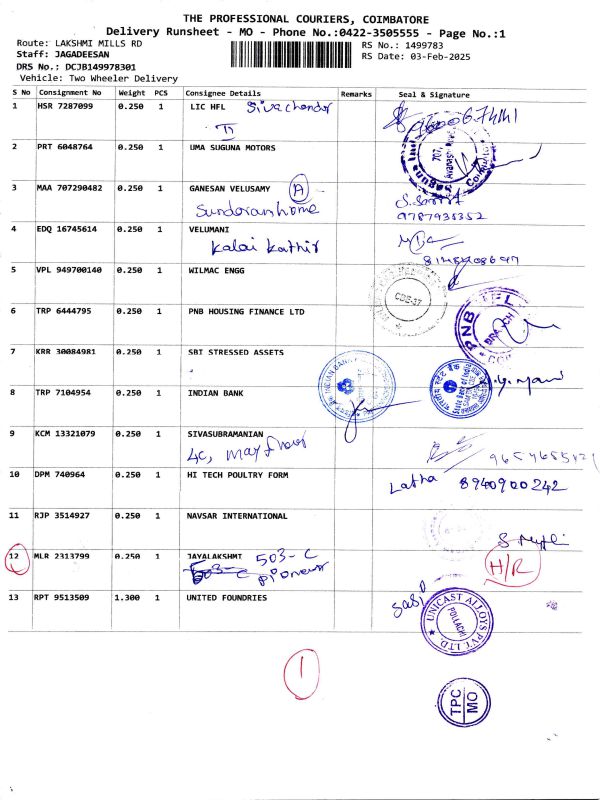 THE PROFESSIONAL COURIERS, COIMBATORE
Delivery Runsheet - MO - Phone No.:0422-3505555 - Page No.:1
Route: LAKSHMI MILLS RD
RS No.: 1499783
Staff: JAGADEESAN
RS Date: 03-Feb-2025
DRS No.: DCJB149978301
Vehicle: Two Wheeler Delivery
S No Consignment No Weight PCS Consignee Details Remarks Seal & Signature
1 HSR 7287099 0.250 1 LIC HFL
2 PRT 6048764 0.250 1 UMA SUGUNA MOTORS
707,
3 MAA 707290482 0.250 1 GANESAN VELUSAMY A
9787935352
4 EDQ 16745614 0.250 1 VELUMANI
Kalai Kathir
5 VPL 949700140 0.250 1 WILMAC ENGG
CBE-37
6 TRP 6444795 0.250 1 PNB HOUSING FINANCE LTD
PNB
BRANCH
7 KRR 30084981 0.250 1 SBI STRESSED ASSETS
INDIAN BANK
State Bank of India
8 TRP 7104954 0.250 1 INDIAN BANK
9 KCM 13321079 0.250 1 SIVASUBRAMANIAN
4C, May flower
10 DPM 740964 0.250 1 HI TECH POULTRY FORM
Latha 8940900242
11 RJP 3514927 0.250 1 NAVSAR INTERNATIONAL
12 MLR 2313799 0.250 1 JAYALAKSHMI 503-C
503-C pioneer
H/R
13 RPT 9513509 1.300 1 UNITED FOUNDRIES
UNICAST ALLOYS PVT LTD.
POLLACHI
1
TPC
MO